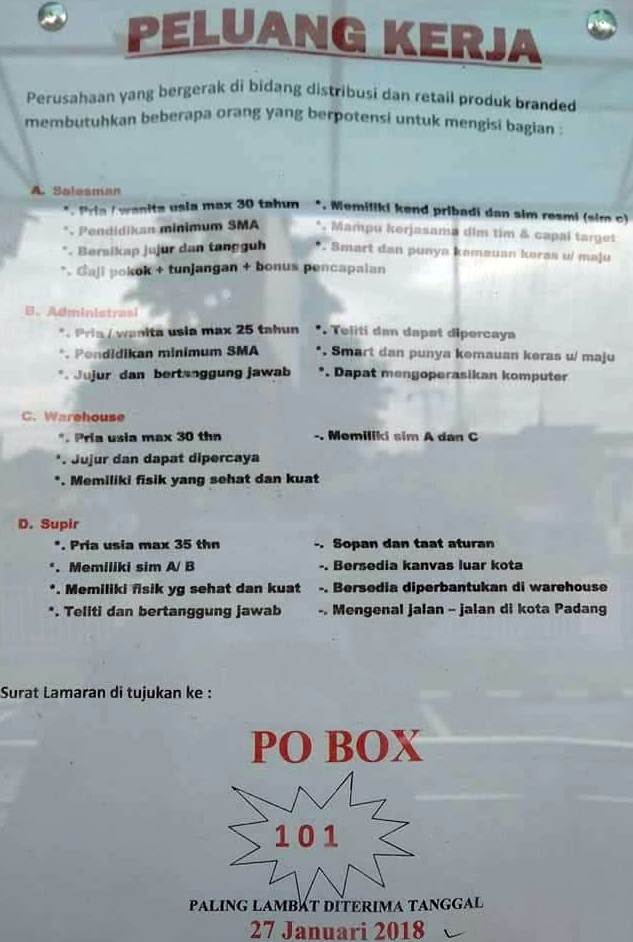 PELUANG KERJA
Perusahaan yang bergerak di bidang distribusi dan retail produk branded
membutuhkan beberapa orang yang berpotensi untuk mengisi bagian :
A. Salesman
*. Pria / wanita usia max 30 tahun *. Memiliki kend pribadi dan sim resmi (sim c)
*. Pendidikan minimum SMA *. Mampu kerjasama dlm tim & capai target
*. Bersikap jujur dan tangguh *. Smart dan punya kemauan keras u/ maju
*. Gaji pokok + tunjangan + bonus pencapaian
B. Administrasi
*. Pria / wanita usia max 25 tahun *. Teliti dan dapat dipercaya
*. Pendidikan minimum SMA *. Smart dan punya kemauan keras u/ maju
*. Jujur dan bertanggung jawab *. Dapat mengoperasikan komputer
C. Warehouse
*. Pria usia max 30 thn -. Memiliki sim A dan C
*. Jujur dan dapat dipercaya
*. Memiliki fisik yang sehat dan kuat
D. Supir
*. Pria usia max 35 thn -. Sopan dan taat aturan
*. Memiliki sim A/ B -. Bersedia kanvas luar kota
*. Memiliki fisik yg sehat dan kuat -. Bersedia diperbantukan di warehouse
*. Teliti dan bertanggung jawab -. Mengenal jalan – jalan di kota Padang
Surat Lamaran di tujukan ke :
PO BOX
101
PALING LAMBAT DITERIMA TANGGAL
27 Januari 2018